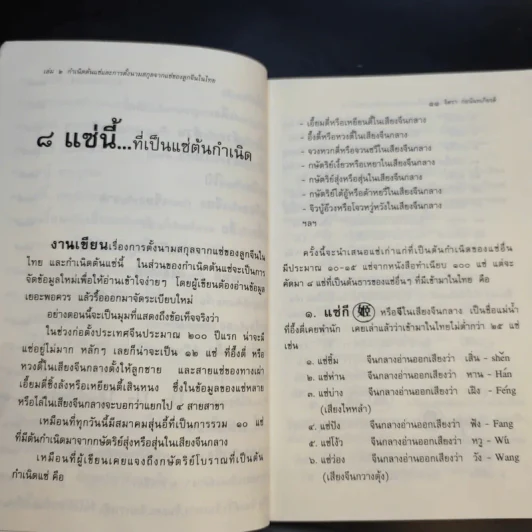 เล่ม ๑ กำเนิดต้นแซ่และการตั้งนามสกุลจากแซ่ของลูกจีนในไทย
๘ แซ่นี้...ที่เป็นแซ่ต้นกำเนิด
งานเขียนเรื่องการตั้งนามสกุลจากแซ่ของลูกจีนใน
ไทย และกำเนิดต้นแซ่นี้ ในส่วนของกำเนิดต้นแซ่จะเป็นการ
จัดข้อมูลใหม่เพื่อให้อ่านเข้าใจง่ายๆ โดยผู้เขียนต้องอ่านข้อมูล
เยอะพอควร แล้วรื้อออกมาจัดระเบียบใหม่
อย่างตอนนี้จะเป็นมุมที่แสดงถึงข้อเท็จจริงว่า
ในช่วงก่อตั้งประเทศจีนประมาณ ๒๐๐ ปีแรก น่าจะมี
แซ่อยู่ไม่มาก หลักๆ เลยก็น่าจะเป็น ๑๒ แซ่ ที่อึ้งตี่ หรือ
หวงตี้ในเสียงจีนกลางตั้งให้ลูกชาย และสายแซ่ของทางเผ่า
เอี้ยมตี่ซิ่งล้งหรือเหยียนตี้เสินหนง ซึ่งในข้อมูลของแซ่หลาย
หรือไล่ในเสียงจีนกลางจะบอกว่าแยกไป ๔ สายสาขา
เหมือนที่ทุกวันนี้มีสมาคมสุ่นอี่ที่เป็นการรวม ๑๐ แซ่
ที่มีต้นกำเนิดมาจากกษัตริย์สุ่งหรือสุ่นในเสียงจีนกลาง
เหมือนที่ผู้เขียนเคยแจงถึงกษัตริย์โบราณที่เป็นต้น
กำเนิดแซ่ คือ
๑๑ จิตรา ก่อนันทเกียรติ
- เอี้ยมตี่หรือเหยียนตี้ในเสียงจีนกลาง
- อึ้งตี่หรือหวงตี้ในเสียงจีนกลาง
- จวงหวกตี่หรือจวนซวี่ในเสียงจีนกลาง
- กษัตริย์เงี่ยวหรือเหยาในเสียงจีนกลาง
- กษัตริย์สุ่งหรือสุ่นในเสียงจีนกลาง
- กษัตริย์ไต้อู้หรือต้าหยวี่ในเสียงจีนกลาง
- จิวบู๊อ๊วงหรือโจวหวู่หวังในเสียงจีนกลาง
ฯลฯ
ครั้งนี้จะนำเสนอแซ่เก่าแก่ที่เป็นต้นกำเนิดของแซ่อื่น
มีประมาณ ๑๐-๑๕ แซ่จากหนังสือทำเนียบ ๑๐๐ แซ่ แต่จะ
คัดมา ๘ แซ่ที่เป็นต้นธารของแซ่อื่นๆ ที่มีเข้ามาในไทย คือ
๑. แซ่กี 姬 หรือจีในเสียงจีนกลาง เป็นชื่อแม่น้ำ
ที่อึ้งตี่เคยพำนัก เคยเล่าแล้วว่าเข้ามาในไทยไม่ต่ำกว่า ๒๕ แซ่
เช่น
๑. แซ่ซิ้ม จีนกลางอ่านออกเสียงว่า เสิ่น - shěn
๒. แซ่ห่าน จีนกลางอ่านออกเสียงว่า หาน - Hán
๓. แซ่บ่าง จีนกลางอ่านออกเสียงว่า เฝิง - Féng
(เสียงไหหลำ)
๔. แซ่ปัง จีนกลางอ่านออกเสียงว่า ฟัง - Fang
๕. แซ่โง้ว จีนกลางอ่านออกเสียงว่า หวู - Wú
๖. แซ่ว่อง จีนกลางอ่านออกเสียงว่า วัง - Wang
(เสียงจีนกวางตุ้ง)